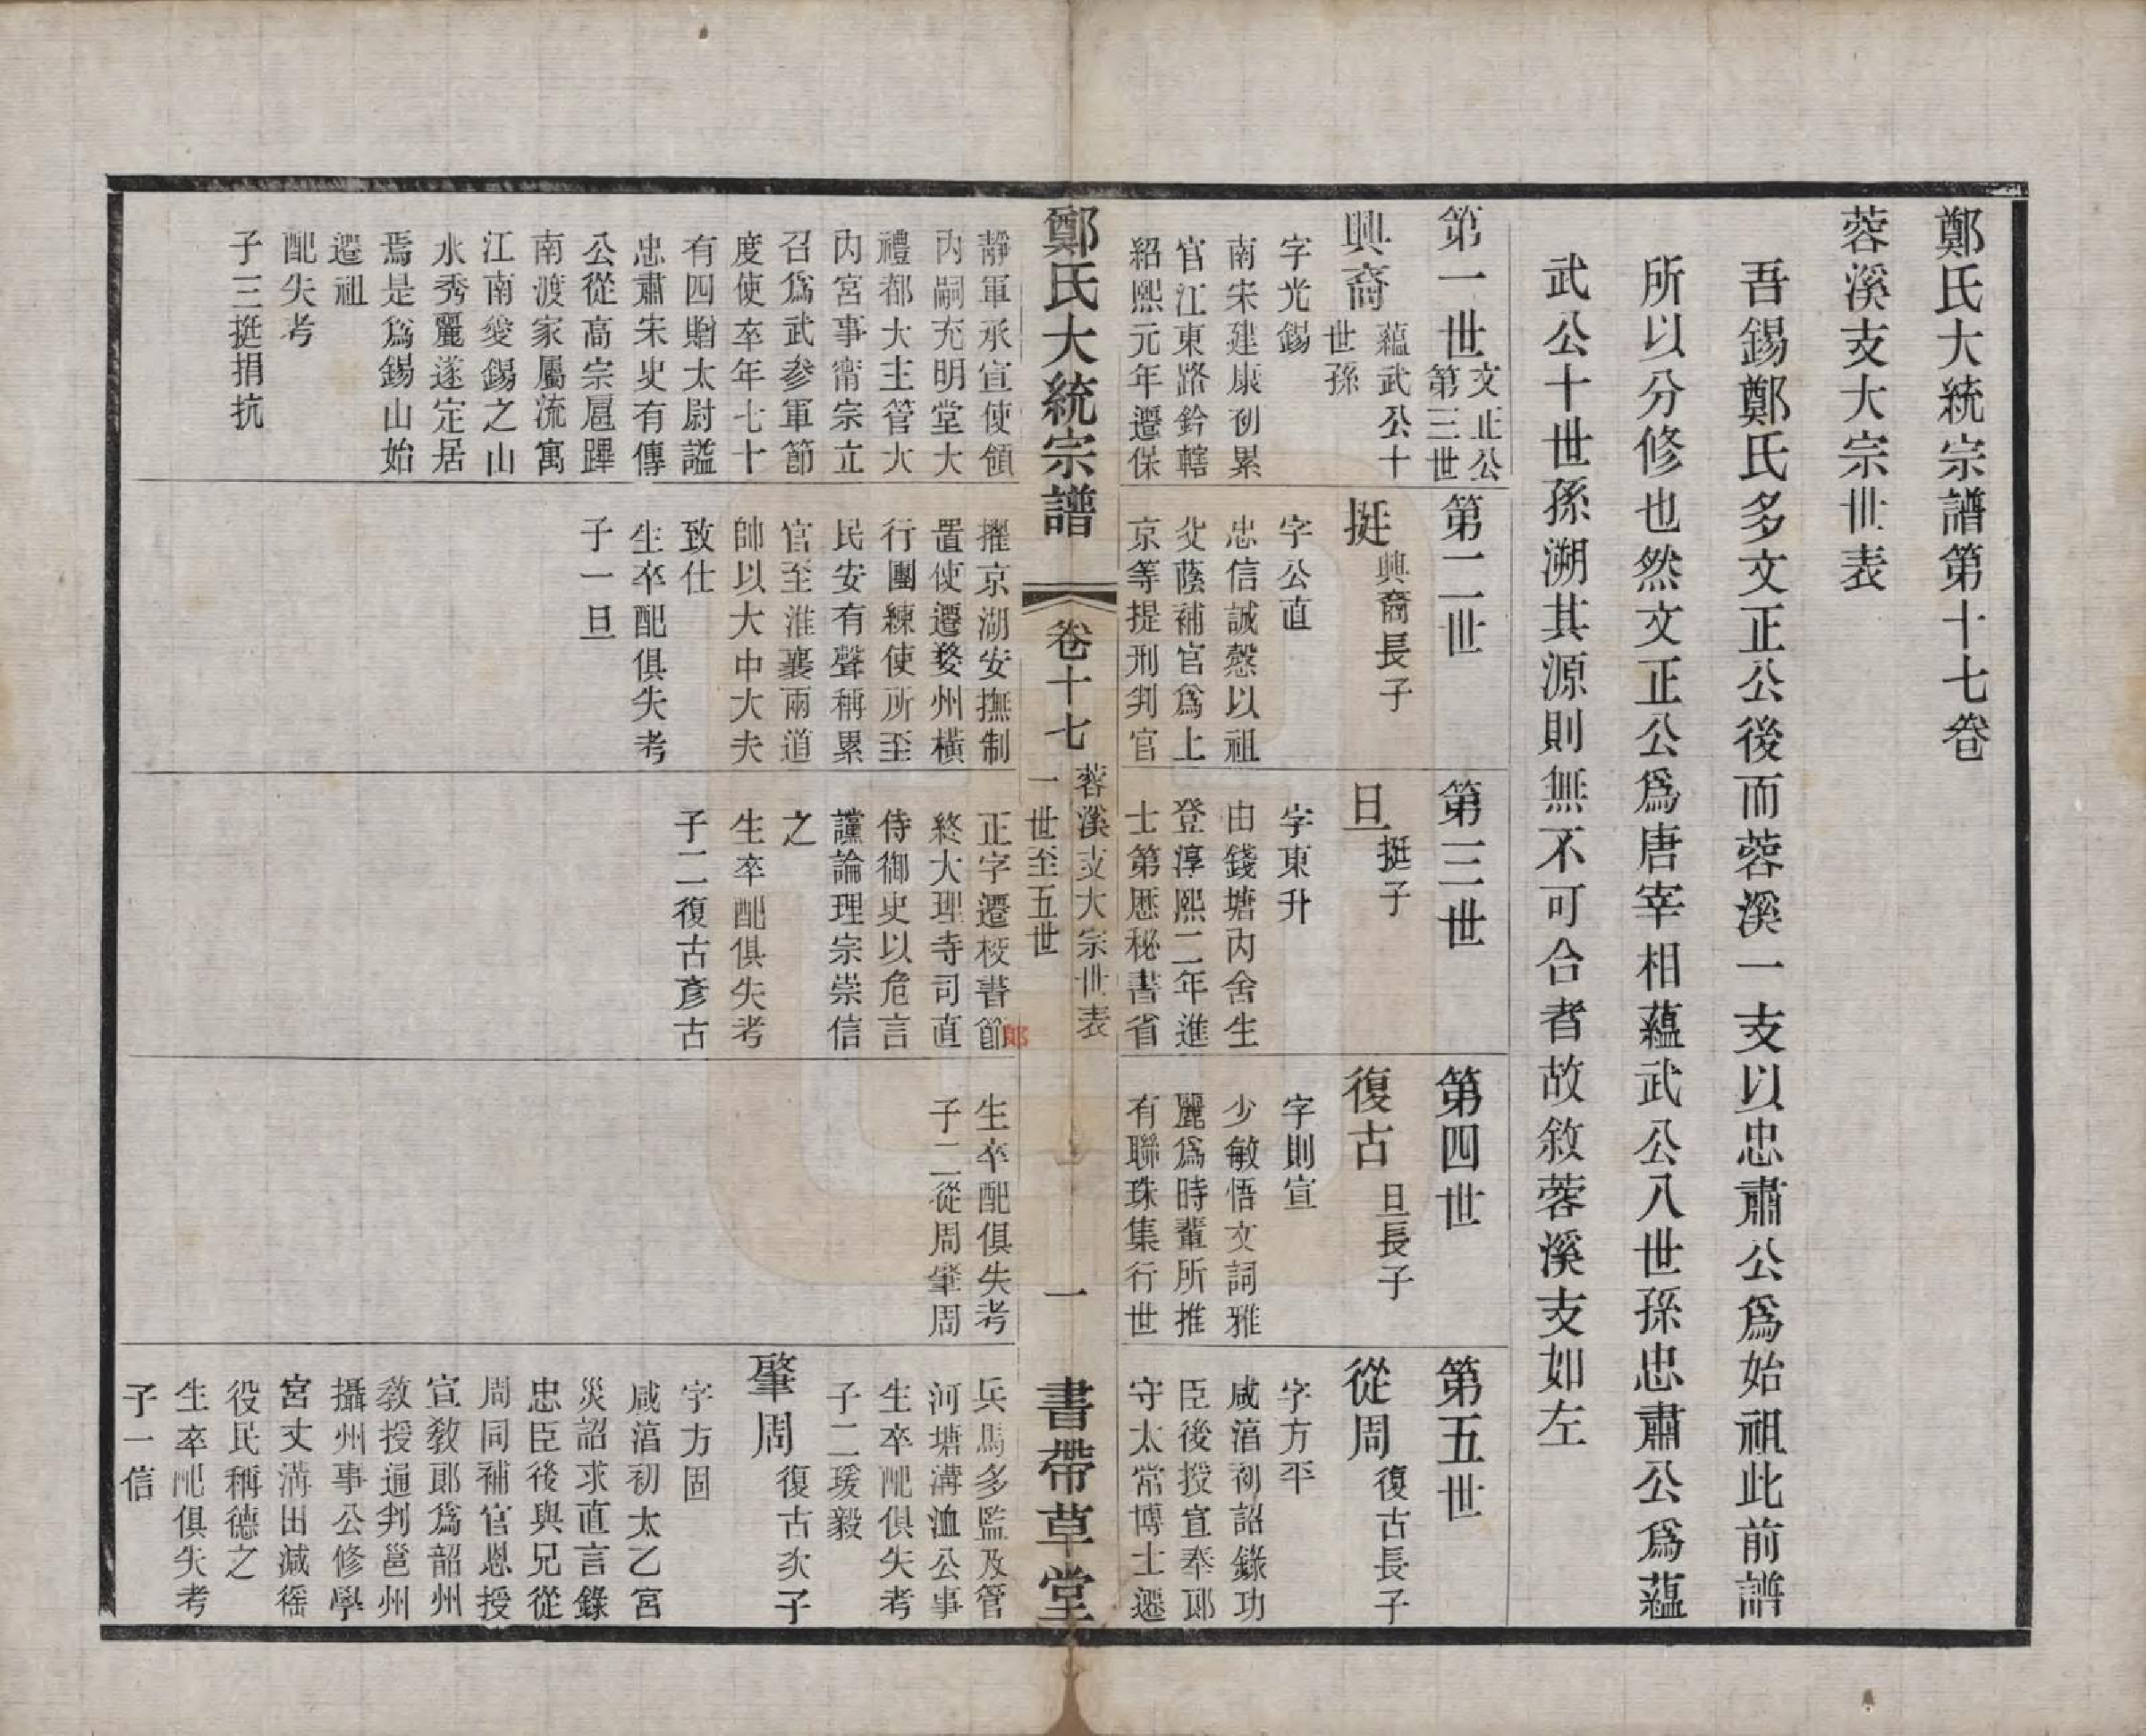 鄭氏大統宗譜第十七卷
蓉溪支大宗世表
吾錫鄭氏多文正公後而蓉溪一支以忠肅公爲始祖此前譜
所以分修也然文正公爲唐宰相蘊武公八世孫忠肅公爲蘊
武公十世孫溯其源則無不可合者故敘蓉溪支如左
第一世
文正公
第三世
興裔
蘊武公十
世孫
字光錫
南宋建康初累
官江東路鈐轄
紹熙元年遷保
靜軍承宣使領
內嗣充明堂大
禮都大主管大
內宮事甯宗立
召爲武參軍節
度使卒年七十
有四贈太尉謚
忠肅宋史有傳
公從高宗扈蹕
南渡家屬流寓
江南愛錫之山
水秀麗遂定居
焉是爲錫山始
遷祖
配失考
子三挺捐抗
第二世
挺
興裔長子
字公直
忠信誠慤以祖
父蔭補官爲上
京等提刑判官
擢京湖安撫制
置使遷婺州橫
行團練使所至
民安有聲稱累
官至淮襄兩道
帥以大中大夫
致仕
生卒配俱失考
子一旦
第三世
旦
挺子
字東升
由錢塘內舍生
登淳熙二年進
士第歷秘書省
正字遷校書節
終大理寺司直
侍御史以危言
讜論理宗崇信
之
生卒配俱失考
子二復古彥古
第四世
復古
旦長子
字則宣
少敏悟文詞雅
麗爲時輩所推
有聯珠集行世
生卒配俱失考
子二從周肇周
第五世
從周
復古長子
字方平
咸淳初詔錄功
臣後授宣奉郎
守太常博士遷
兵馬多監及管
河塘溝洫公事
生卒配俱失考
子二瑗毅
肇周
復古次子
字方固
咸淳初太乙宮
災詔求直言錄
忠臣後與兄從
周同補官恩授
宣敎郎爲韶州
敎授通判邕州
攝州事公修學
宮丈溝田減徭
役民稱德之
生卒配俱失考
子一信
鄭氏大統宗譜
卷十七
蓉溪支大宗世表
一世至五世
一
書帶草堂
鄭